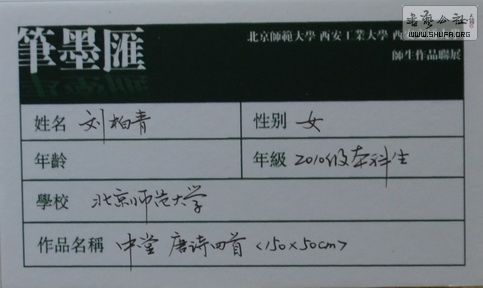 筆墨匯
北京師範大學 西安工業大學 西
師生作品聯展
WWW.SHUFA.ORG
姓名 刘柏青 性别 女
年齡 年級 2010级本科生
學校 北京师范大学
作品名稱 中堂 唐诗四首 <150×50cm>